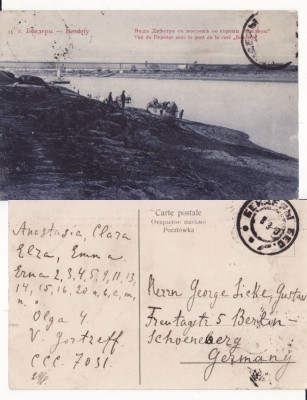 Бендеры — Bendéry
Видъ Днѣстра съ мостомъ со стороны
Vue du Dniester avec le pont de la cité
Carte postale
Открытое письмо
Pocztówka
БЕНДЕРЫ БЕС.
Anastasia, Clara
Elza, Emma
Erna 2, 3, 4, 5, 9, 11, 13,
14, 15, 16, 20 a, b, c, m,
n.
Olga 4.
V.
CCC. 7031.
Herrn George Licke, Gustav
Freitagstr 5 Berlin-
Schoeneberg
Germany